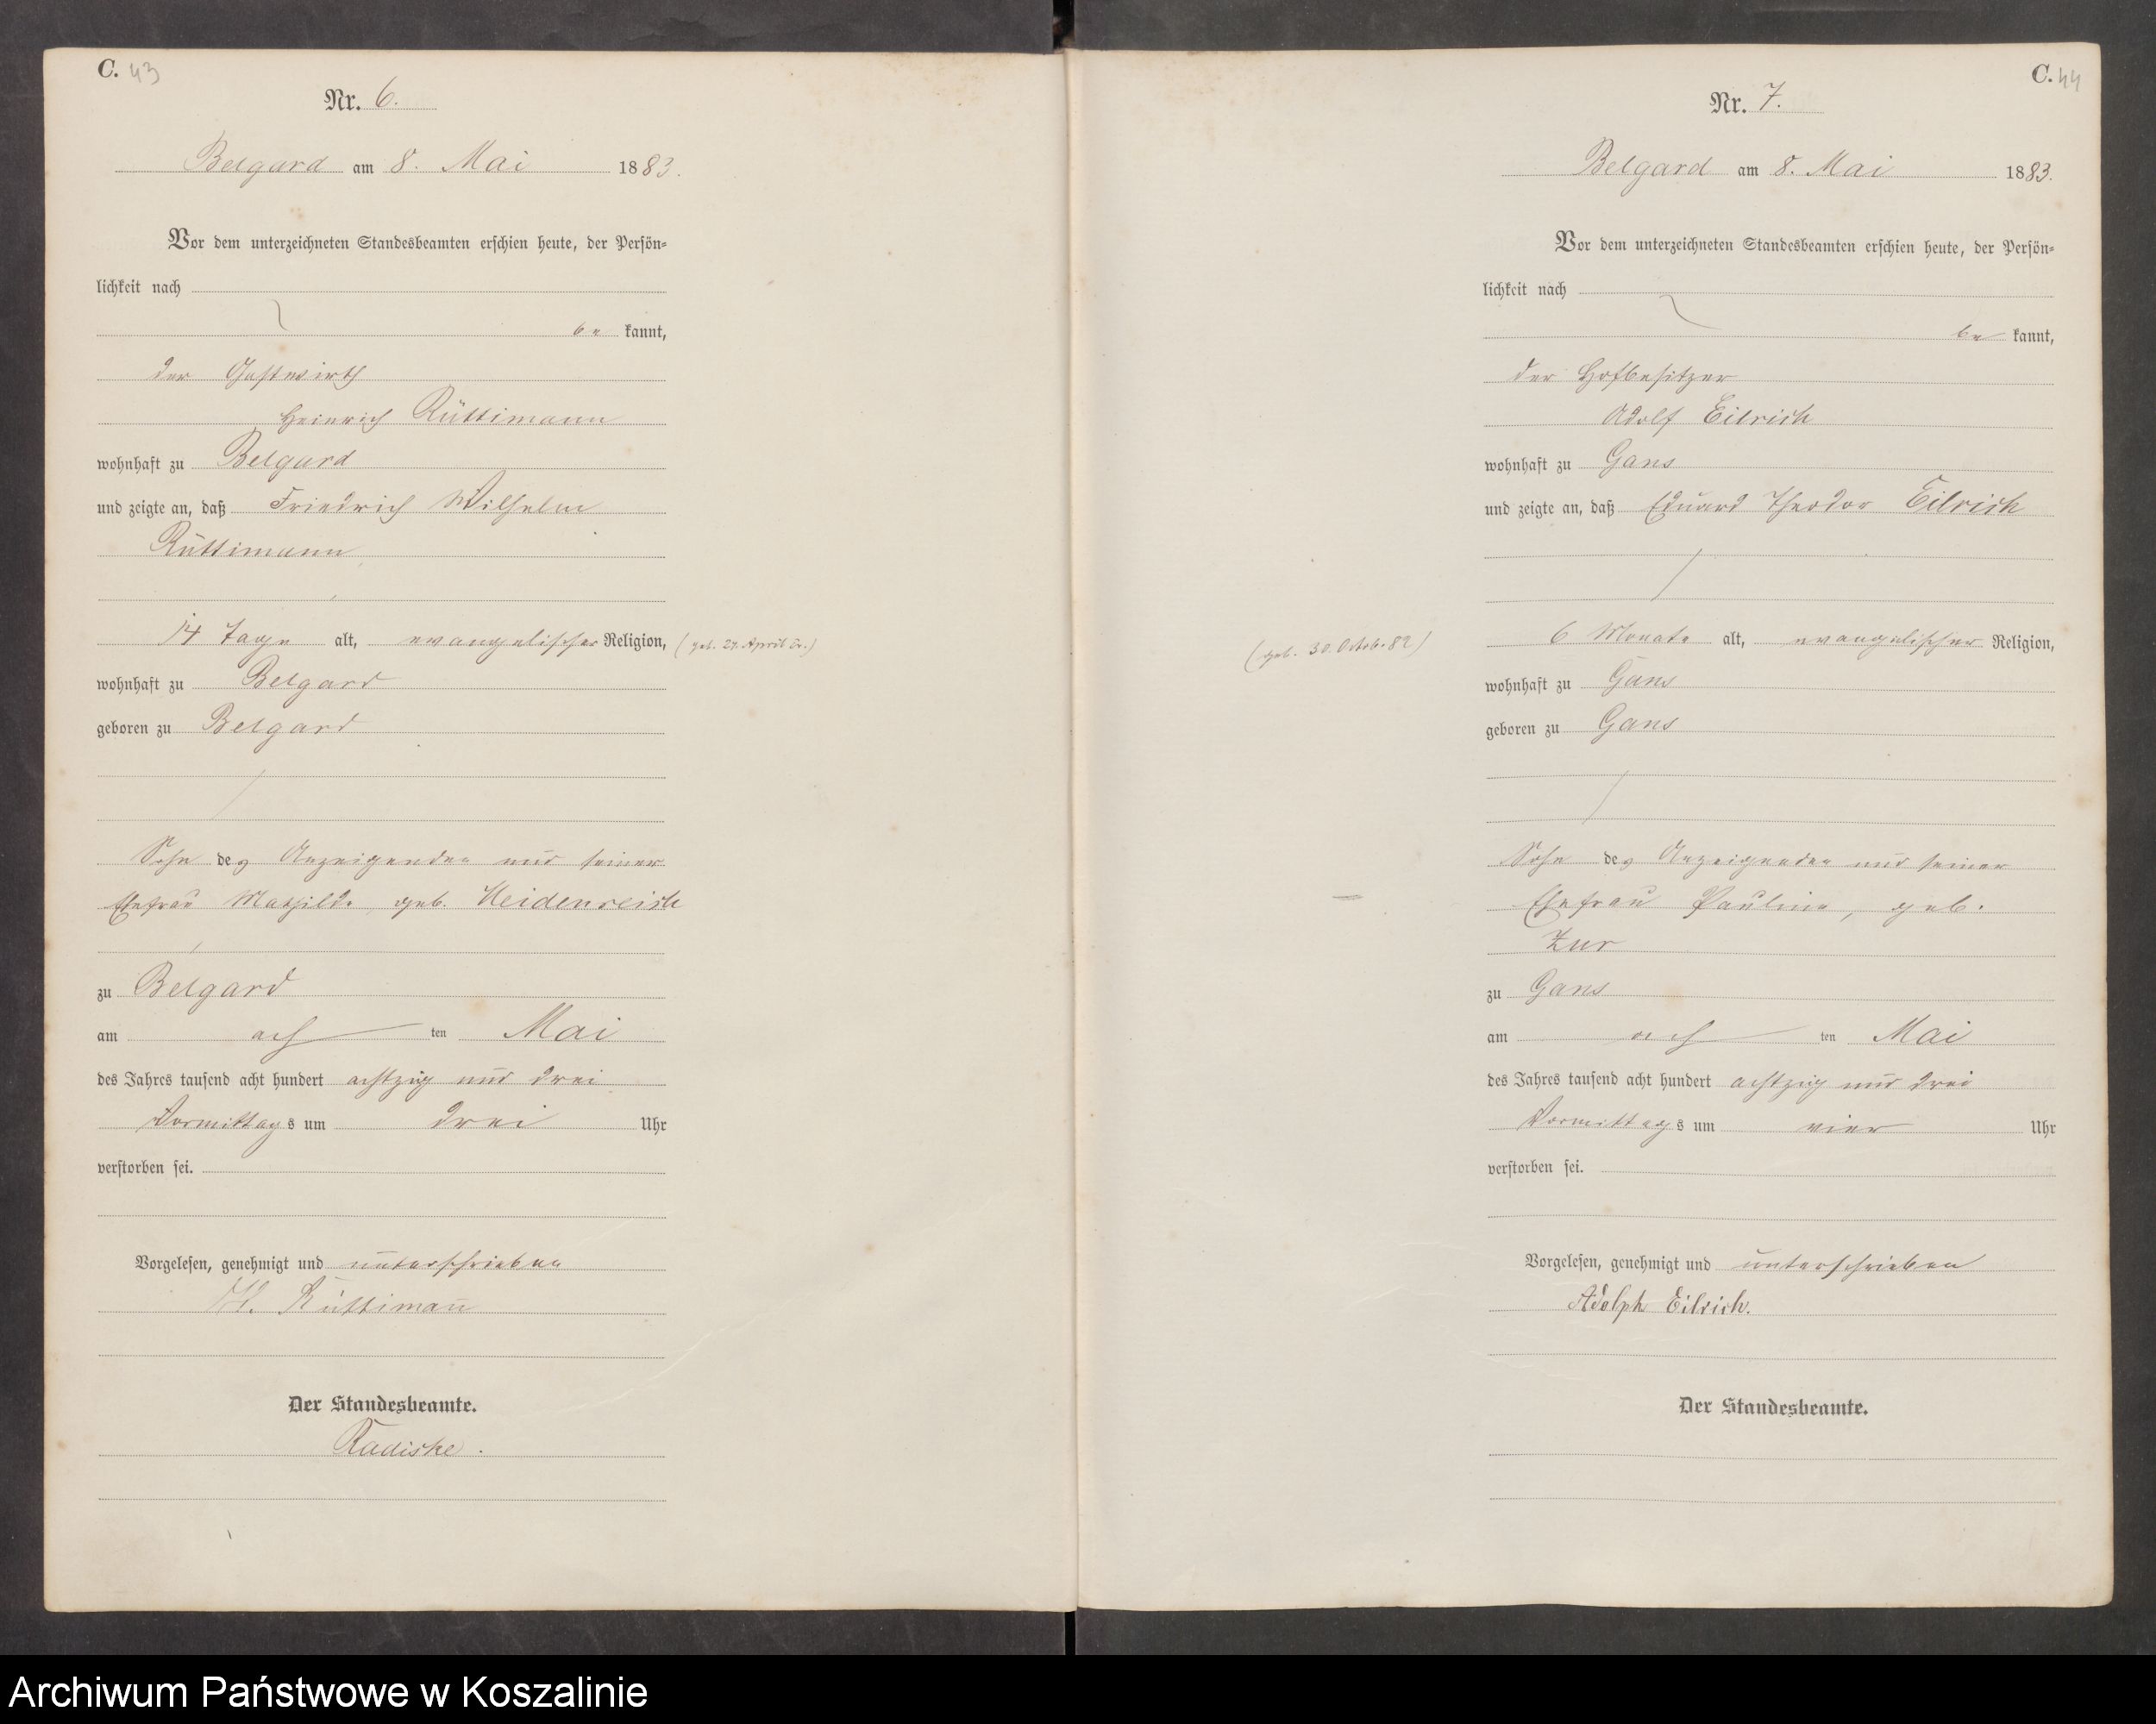 C. 43
Nr. 6.
Belgard am 8. Mai 1883.
Vor dem unterzeichneten Standesbeamten erschien heute, der Persön-
lichkeit nach
be kannt,
der Gastwirth
Heinrich Rüttimann
wohnhaft zu Belgard
und zeigte an, daß Friedrich Wilhelm
Rüttimann,
14 Tage alt, evangelischer Religion, (geb. 24. April cr.)
wohnhaft zu Belgard
geboren zu Belgard
Sohn des Anzeigenden und seiner
Ehefrau Mathilde geb. Heidenreich
zu Belgard
am ach ten Mai
des Jahres tausend acht hundert achtzig und drei
Vormittags um drei Uhr
verstorben sei.
Vorgelesen, genehmigt und unterschrieben
H. Rüttiman̄
Der Standesbeamte.
Radiske.
C. 44
Nr. 7.
Belgard am 8. Mai 1883.
Vor dem unterzeichneten Standesbeamten erschien heute, der Persön-
lichkeit nach
be kannt,
der Hofbesitzer
Adolf Eilrich
wohnhaft zu Gans
und zeigte an, daß Eduard Theodor Eilrich
(geb. 30. Octob. 82) 6 Monate alt, evangelischer Religion,
wohnhaft zu Gans
geboren zu Gans
Sohn des Anzeigenden und seiner
Ehefrau Pauline, geb.
Zur
zu Gans
am ach ten Mai
des Jahres tausend acht hundert achtzig und drei
Vormittags um vier Uhr
verstorben sei.
Vorgelesen, genehmigt und unterschrieben
Adolph Eilrich.
Der Standesbeamte.
Archiwum Państwowe w Koszalinie